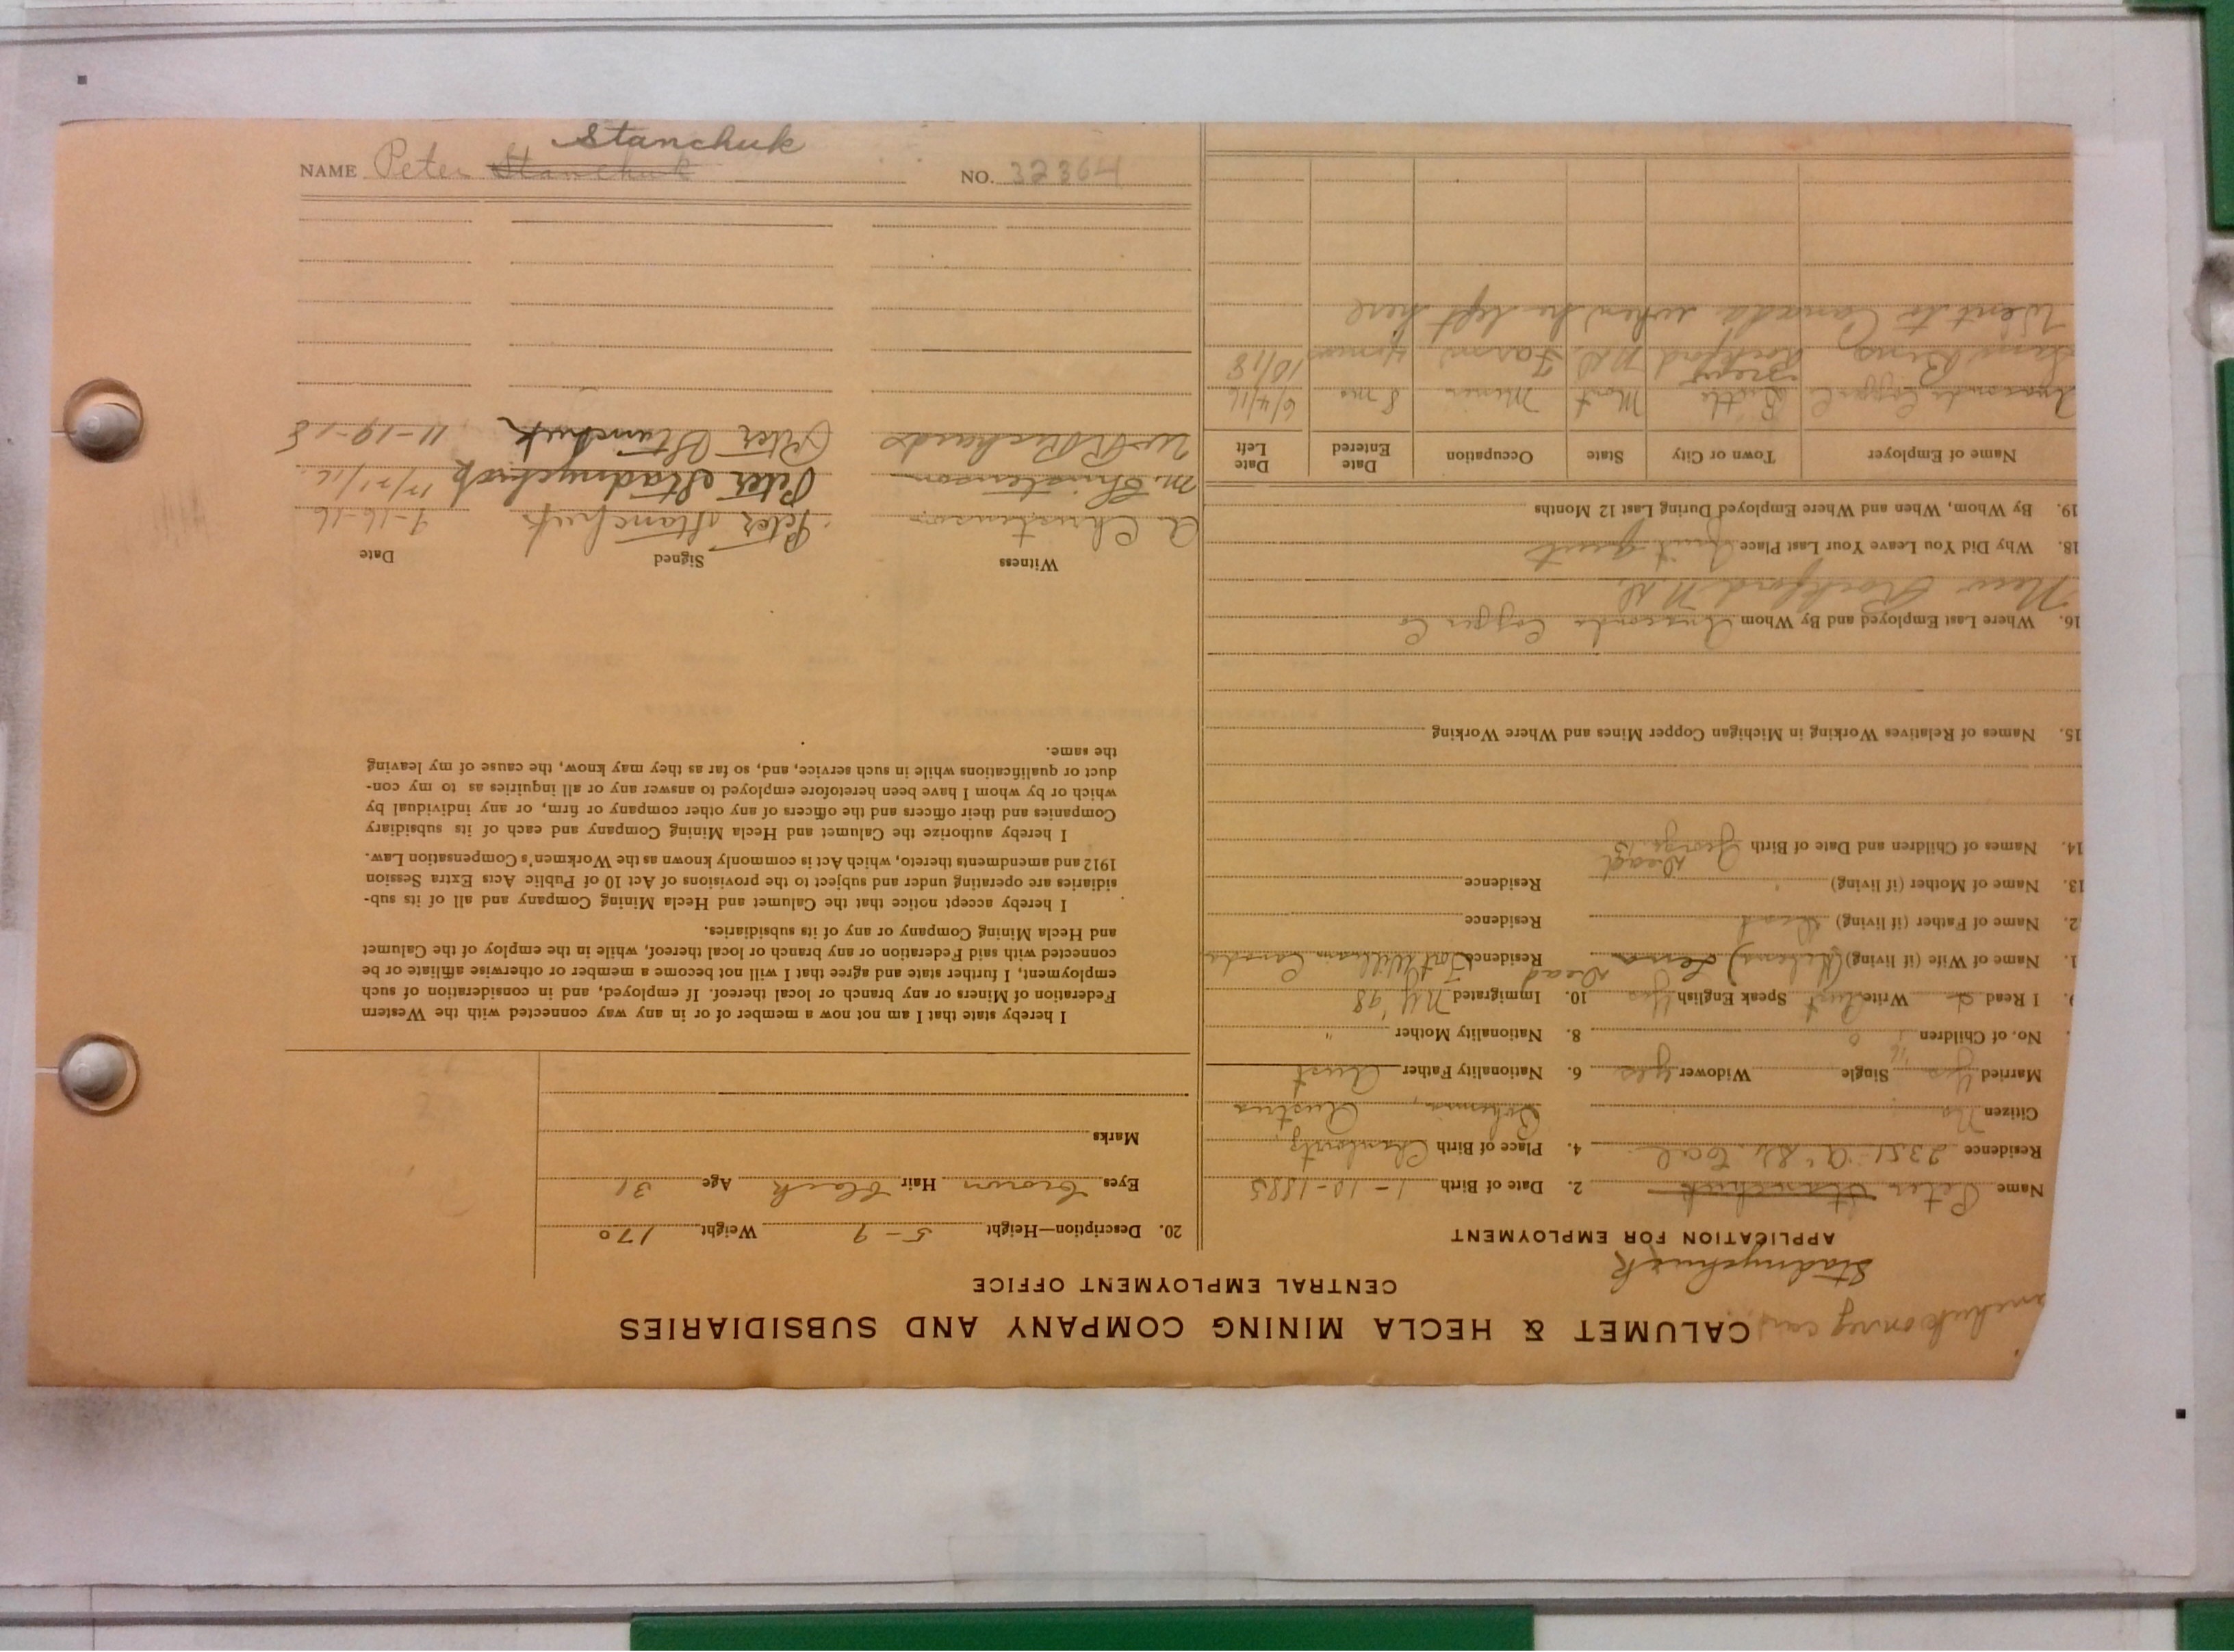 Stanchuk
NAME Peter Stanchuk NO. 32364
CALUMET & HECLA MINING COMPANY AND SUBSIDIARIES
CENTRAL EMPLOYMENT OFFICE
Stadnychuk
APPLICATION FOR EMPLOYMENT
Name Peter Stanchuk 2. Date of Birth 1-10-1885
Residence 2351 A St. Local 4. Place of Birth
Citizen No Bohemia, Austria
Married Yes Single Widower yes 6. Nationality Father Aust
No. of Children 8. Nationality Mother "
9. I Read Write Aust Speak English Yes 10. Immigrated N.Y. '98
Dead
1. Name of Wife (if living) Lena Residence Fort William Canada
2. Name of Father (if living) Dead Residence
13. Name of Mother (if living) Dead Residence
14. Names of Children and Date of Birth George
15. Names of Relatives Working in Michigan Copper Mines and Where Working
16. Where Last Employed and By Whom Anaconda Copper Co
New Rockford N.D.
18. Why Did You Leave Your Last Place Just quit
19. By Whom, When and Where Employed During Last 12 Months
Name of Employer Town or City State Occupation Date Entered Date Left
Anaconda Copper Butte Mont Miner 8 mo 6/4/16
Rockford N.D. Farm 10/18
Went to Canada when he left here
20. Description—Height 5-9 Weight 170
Eyes brown Hair black Age 31
Marks
I hereby state that I am not now a member of or in any way connected with the Western
Federation of Miners or any branch or local thereof. If employed, and in consideration of such
employment, I further state and agree that I will not become a member or otherwise affiliate or be
connected with said Federation or any branch or local thereof, while in the employ of the Calumet
and Hecla Mining Company or any of its subsidiaries.
I hereby accept notice that the Calumet and Hecla Mining Company and all of its sub-
sidiaries are operating under and subject to the provisions of Act 10 of Public Acts Extra Session
1912 and amendments thereto, which Act is commonly known as the Workmen's Compensation Law.
I hereby authorize the Calumet and Hecla Mining Company and each of its subsidiary
Companies and their officers and the officers of any other company or firm, or any individual by
which or by whom I have been heretofore employed to answer any or all inquiries as to my con-
duct or qualifications while in such service, and, so far as they may know, the cause of my leaving
the same.
Witness Signed Date
A Christenson Peter Stanchuk 9-16-16
M. Christenson Peter Stadnychuk 12/21/16
W R Richards Peter Stanchuk 11-19-18